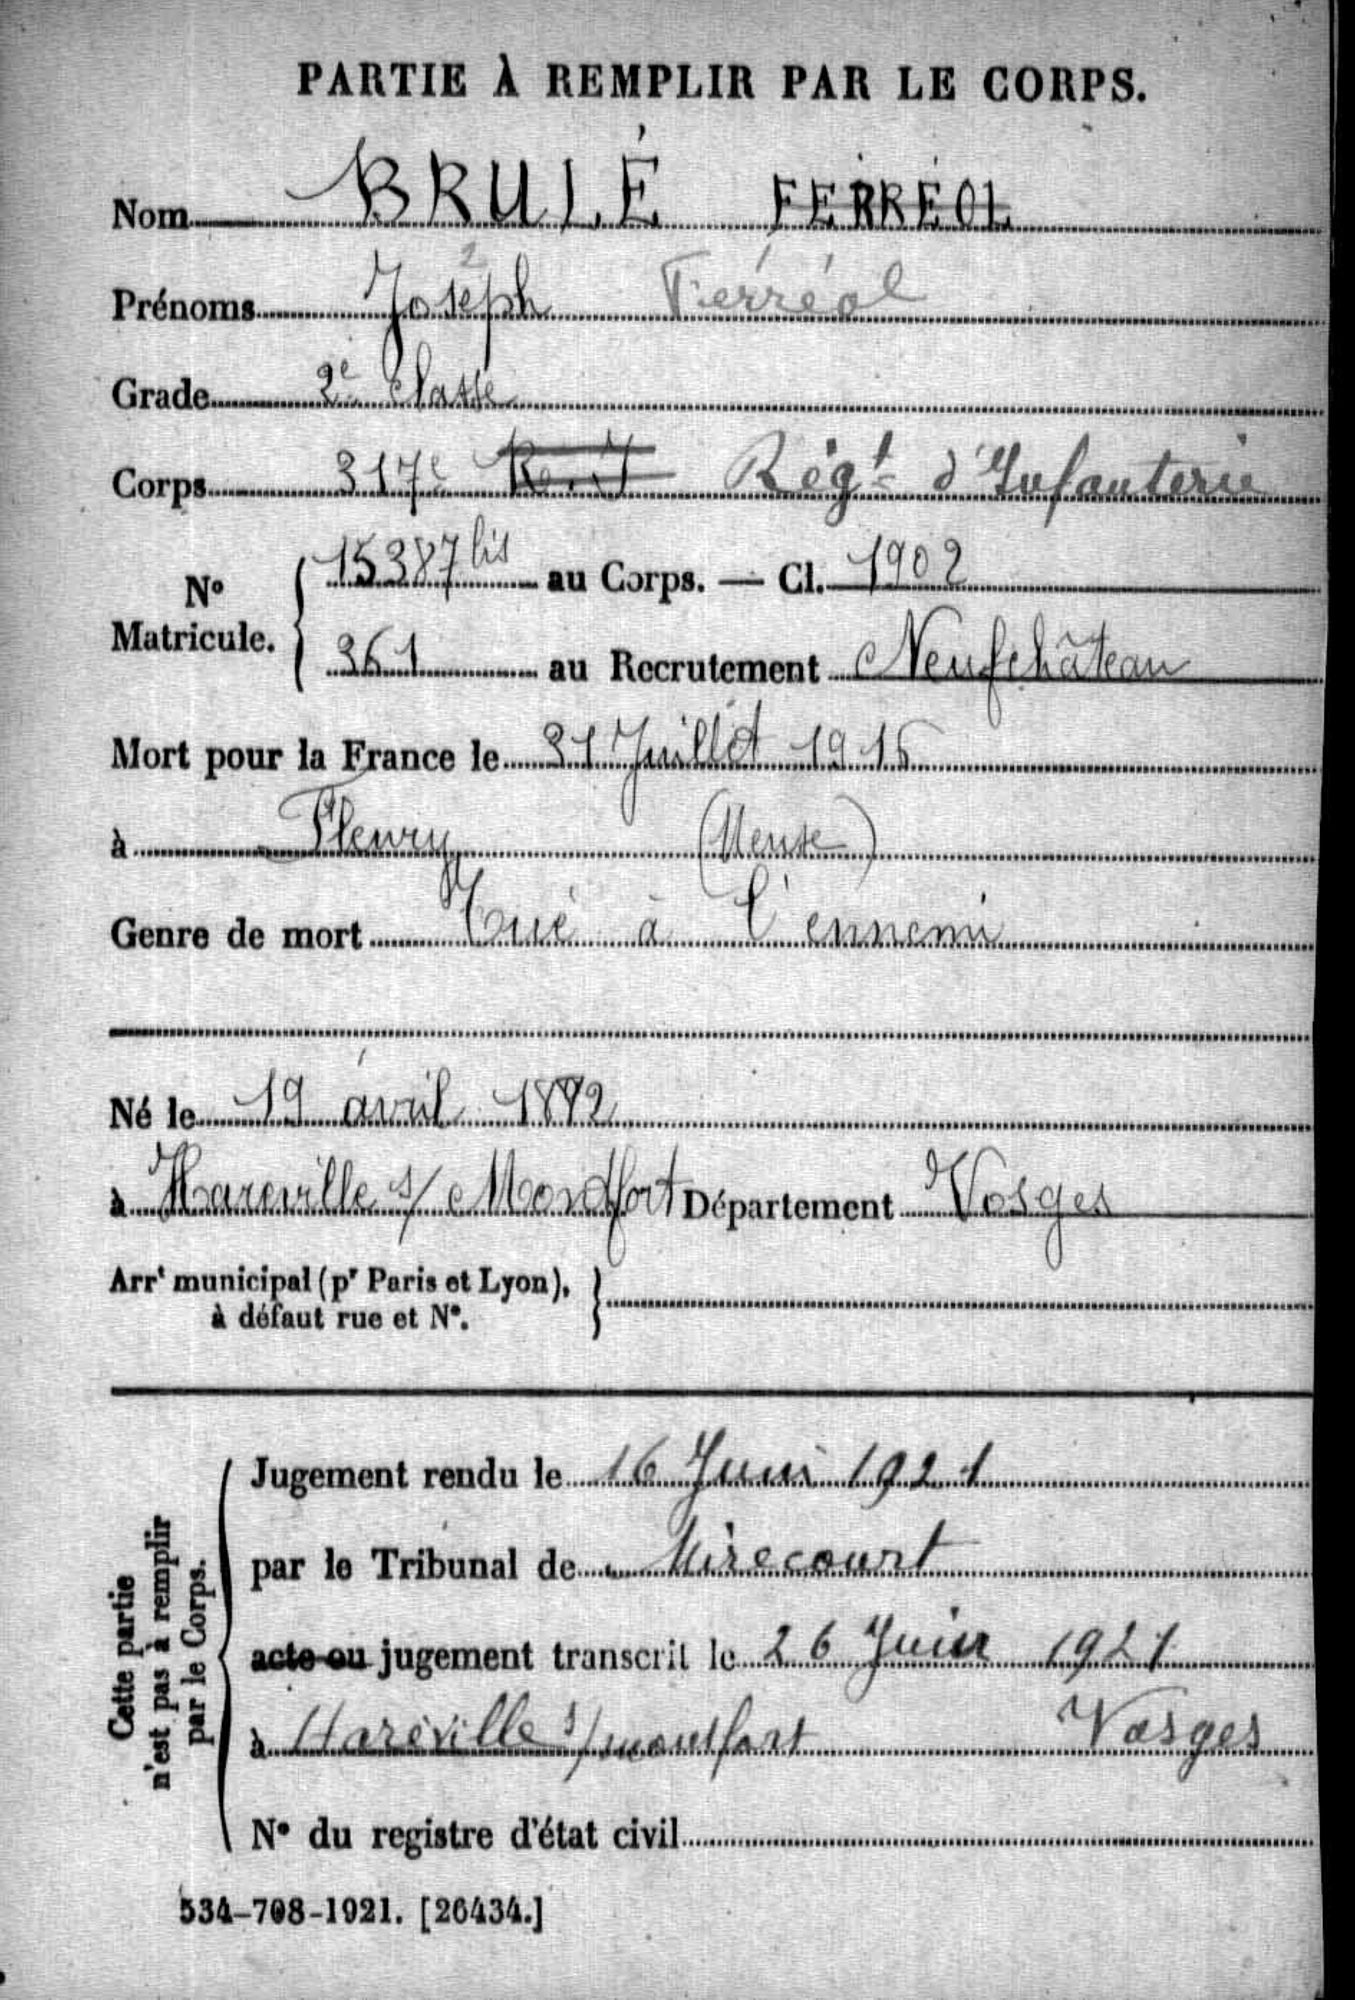 PARTIE À REMPLIR PAR LE CORPS.
Nom BRULÉ FERRÉOL
Prénoms Joseph 2 Ferréol
Grade 2e classe
Corps 317e R.I Régt d'Infanterie
No Matricule. 15387 bis au Corps. — Cl. 1902
361 au Recrutement Neufchâteau
Mort pour la France le 31 Juillet 1916
à Fleury (Meuse)
Genre de mort Tué à l'ennemi
Né le 19 avril 1882
à Hareville s/ Montfort Département Vosges
Arrt municipal (pr Paris et Lyon),
à défaut rue et No.
Cette partie
n'est pas à remplir
par le Corps.
Jugement rendu le 16 Juin 1921
par le Tribunal de Mirecourt
acte ou jugement transcrit le 26 Juin 1921
à Haréville s/ montfort Vosges
No du registre d'état civil
534-708-1921. [26434.]